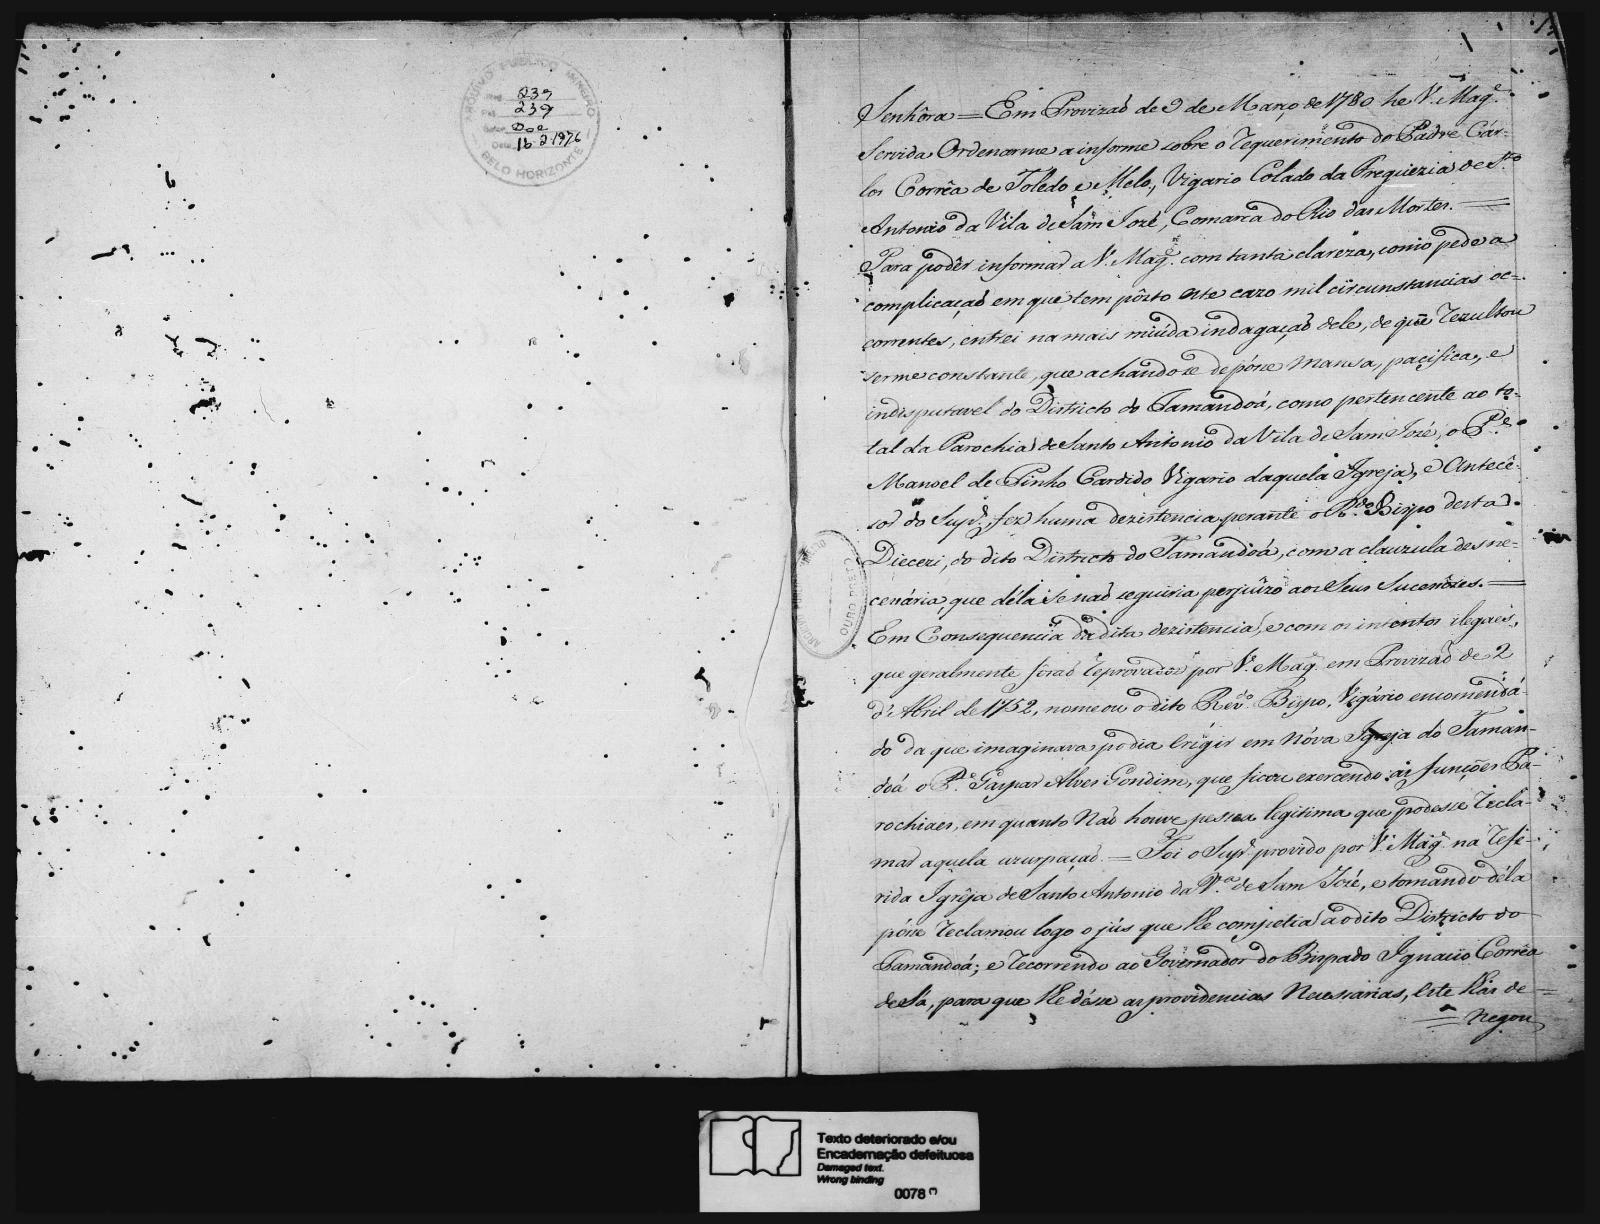 ARQUIVO PÚBLICO MINEIRO
239
239
Doc
Data 16 2 1976
BELO HORIZONTE
Senhôra = Em Provizaõ de 9 de Março de 1780 he V. Mag.e
Servida Ordenarme a informe sobre o Requerimento do Padre Cár-
los Corrêa de Toledo e Melo, Vigario Colado da Freguezia de S.to
Antonio da Vila de Sam Jozé, Comarca do Rio das Mortes. =
Para podêr informar a V. Mag.e com tanta clareza, como pede a
complicaçaõ em que tem pôsto este cazo mil circunstancias oc-
correntes, entrei na mais miúda indagaçaõ dele, de que Rezultou
serme constante, que achandose de pósse mansa, pacifica, e
indisputavel do Districto do Tamandoá, como pertencente ao to-
tal da Parochia de Santo Antonio da Vila de Sam Jozé, o P.e
Manoel de Pinho Cardido Vigario daquela Igreja, e Antecê-
sor do Sup.e, fez huma dezistencia perante o R.do Bispo desta
Diecezi, do dito Districto do Tamandoá, com a clauzula desne-
cesária, que déla se naõ seguiria perjuizo aos Seus Sucessôres. =
Em Consequencia da dita dezistencia, e com os intentos ilegaes,
que geralmente foraõ Reprovados por V. Mag.e em Provizaõ de 2
d'Abril de 1752, nomeou o dito Rev.do Bispo, Vigário encomendá-
do da que imaginava podia Erigir em Nóva Igreja do Taman-
doá o P.e Gaspar Alves Gondim, que ficou exercendo as funções Pa-
rochiaes, em quanto Naõ houve pessoa legitima que podesse Recla-
mar aquela uzurpaçaõ. = Foi o Sup.e provido por V. Mag.e na Refe-
rida Igreja de Santo Antonio da V.a de Sam Jozé, e tomando déla
pósse Reclamou logo o jús que lhe competia ao dito Districto do
Tamandoá; e Recorrendo ao Governador do Bispado Ignacio Corrêa
de Sá, para que lhe désse as providencias Necessarias, este lhas de-
= negou
ARQUIVO PÚBLICO MINEIRO
OURO PRETO
Texto deteriorado e/ou
Encadernação defeituosa
Damaged text.
Wrong binding
0078